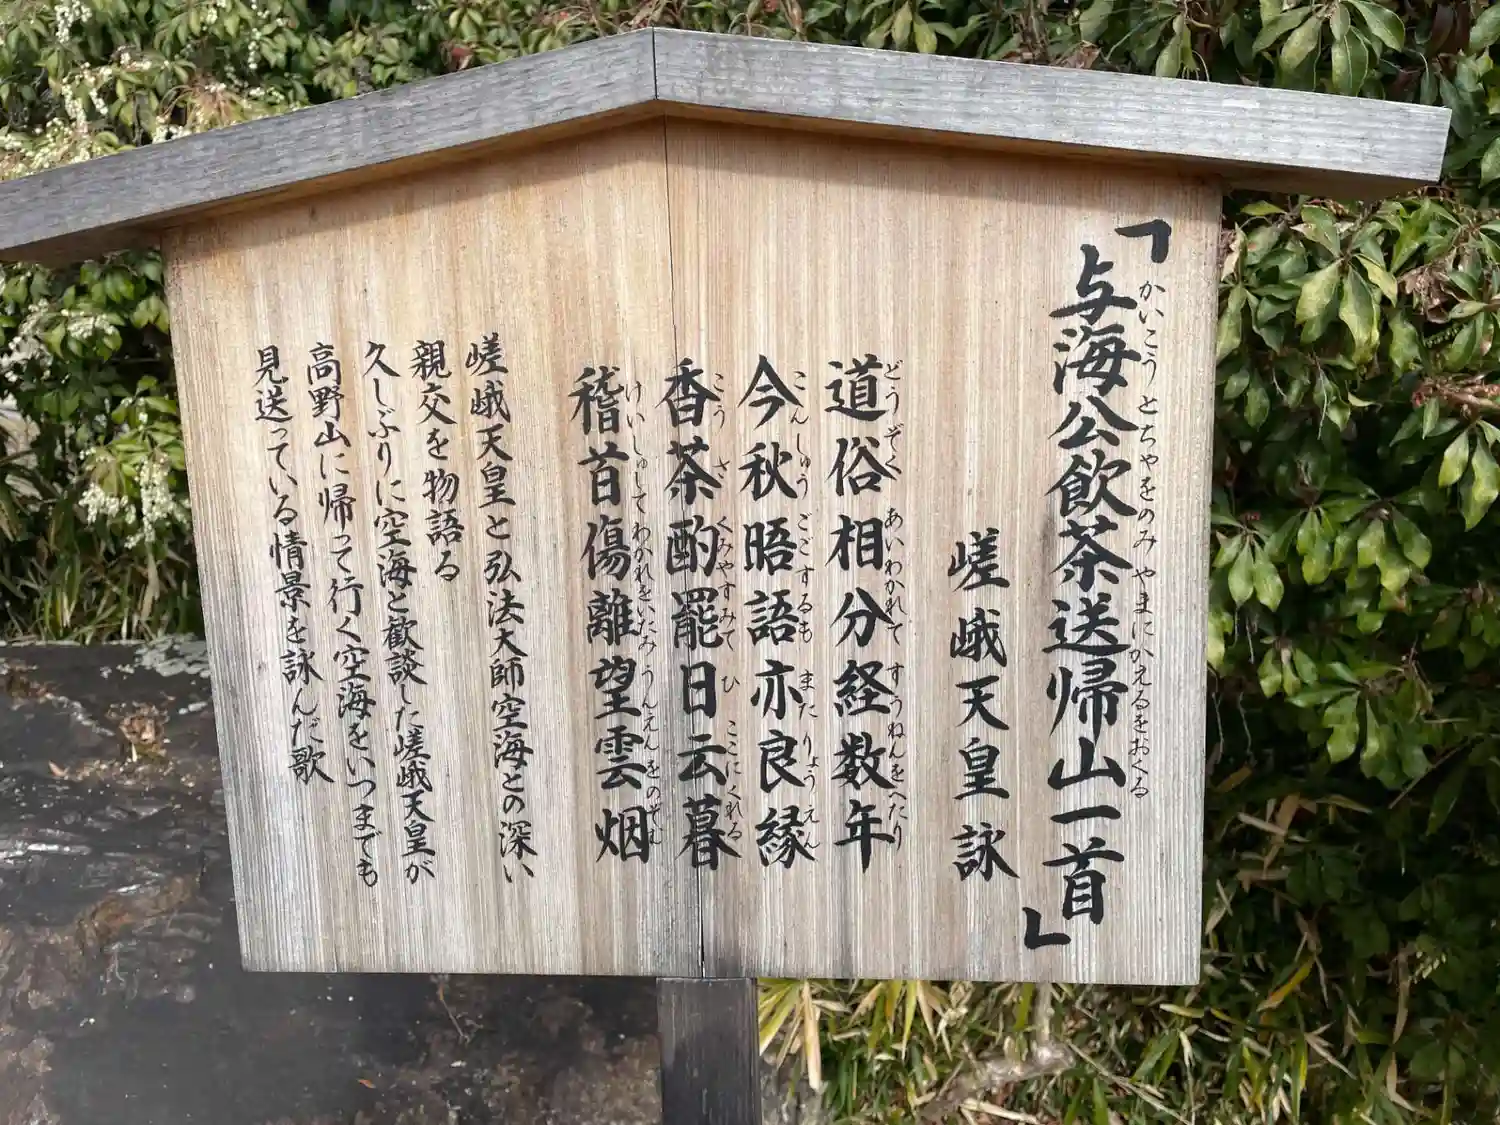 「与海公飲茶送帰山一首」
かいこうとちゃをのみやまにかえるをおくる
嵯峨天皇詠
道俗相分経数年
どうぞくあいわかれてすうねんをへたり
今秋晤語亦良縁
こんしゅうごごするもまたりょうえん
香茶酌罷日云暮
こうざくみやすみてひここにくれる
稽首傷離望雲烟
けいしゅしてわかれをいたみうんえんをのぞむ
嵯峨天皇と弘法大師空海との深い
親交を物語る
久しぶりに空海と歓談した嵯峨天皇が
高野山に帰って行く空海をいつまでも
見送っている情景を詠んだ歌